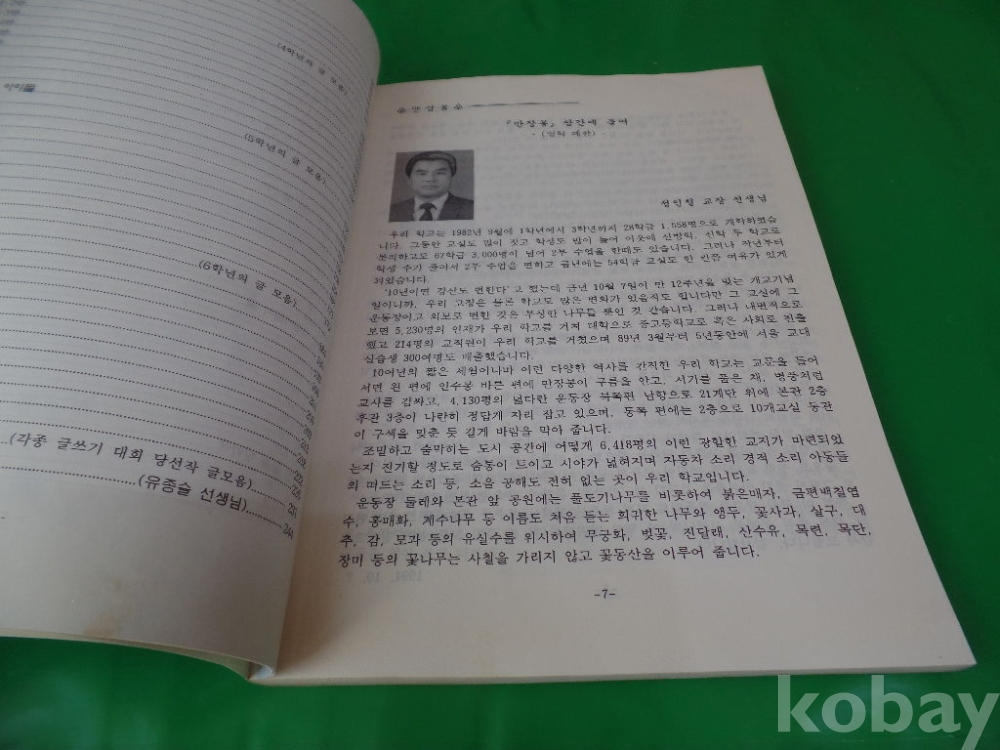 (4학년의 글 모음)
아이들
(5학년의 글 모음)
(6학년의 글 모음)
(각종 글쓰기 대회 당선작 글모음)
(유종슬 선생님)
231
244
『만장봉』 창간에 즈여
교장 선생님
우리 학교는 1982년 9월에 1학년에서 3학년까지 28학급 1,558명으로 개학하였습
니다. 그동안 교실도 많이 짓고 학생도 많이 늘어 이웃에 신방학, 신학 두 학교로
분리하고도 67학급 3,000명이 넘어 2부 수업을 한때도 있습니다. 그러나 작년부터
학생 수가 줄어서 2부 수업을 면하고 금년에는 54학급 교실도 한 인준 여유가 있게
되었습니다.
'10년이면 강산도 변한다'고 했는데 금년 10월 7일이 만 12주년을 맞는 개교기념
일이니까, 우리 고장은 물론 학교도 많은 변화가 있을직도 합니다만 그 교실에 그
운동장이고 외모로 변한 것은 무성한 나무들 뿐인 것 같습니다. 그러나 내면적으로
보면 5,230명의 인재가 우리 학교를 거쳐 대학으로 중고등학교로 혹은 사회로 진출
했고 214명의 교직원이 우리 학교를 거쳤으며 89년 3월부터 5년동안에 서울 교대
실습생 300여명도 배출했습니다.
10여년의 짧은 세월이나마 이런 다양한 역사를 간직한 우리 학교는 교문을 들어
서면 왼 편에 인수봉 바른 편에 만장봉이 구름을 안고, 서기를 품은 채, 병풍처럼
교사를 감싸고, 4,130평의 넓다란 운동장 북쪽편 남향으로 21계단 위에 본관 2층
후관 3층이 나란히 정답게 자리 잡고 있으며, 동쪽 편에는 2층으로 10개교실 동관
이 구색을 맞춘 듯 길게 바람을 막아 줍니다.
조밀하고 숨막히는 도시 공간에 어떻게 6,418평의 이런 광할한 교지가 마련되었
는지 진기할 정도로 숨통이 트이고 시야가 넓혀지며 자동차 소리 경적 소리 아동들
의 떠드는 소리 등, 소음 공해도 전혀 없는 곳이 우리 학교입니다.
운동장 둘레와 본관 앞 공원에는 풀도기나무를 비롯하여 붉은매자, 금편백칠엽
수, 홍매화, 계수나무 등 이름도 처음 듣는 희귀한 나무와 앵두, 꽃사과, 살구, 대
추, 감, 모과 등의 유실수를 위시하여 무궁화, 벚꽃, 진달래, 산수유, 목련, 목단,
장미 등의 꽃나무는 사철을 가리지 않고 꽃동산을 이루어 줍니다.
-7-
kobay